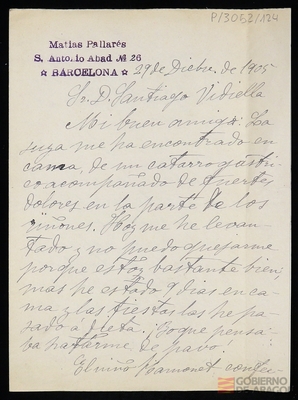 P/3053/124
Matias Pallarés
S. Antonio Abad № 26
BARCELONA
29 de Dicbre. de 1905
Sr. D. Santiago Vidiella
Mi buen amigo: La
suya me ha encontrado en
cama, de un catarro gástri
co acompañado de fuertes
dolores en la parte de los
riñones. Hoy me he levan-
tado y no puedo quejarme
porque estoy bastante bien
mas he estado 9 dias en ca-
ma y las fiestas las he pa-
sado a dieta. ¡Yo que pensa-
ba hatarme de pavo!
El niño Ramonet
GOBIERNO
DE ARAGON